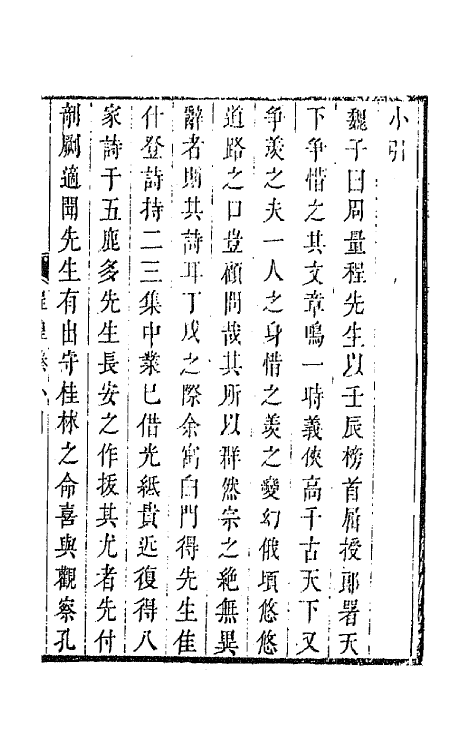 小引
魏子曰周量程先生以壬辰榜首屈授郎署天
下爭惜之其文章鳴一時義俠高千古天下又
爭羨之夫一人之身惜之羨之變幻俄頃悠悠
道路之口豈顧問哉其所以群然宗之絶無異
辭者則其詩耳丁戊之際余寓白門得先生佳
什登詩持二三集中業已借光紙貴近復得八
家詩于五鹿多先生長安之作扳其尤者先付
剞劂適聞先生有出守桂林之命喜與觀察孔